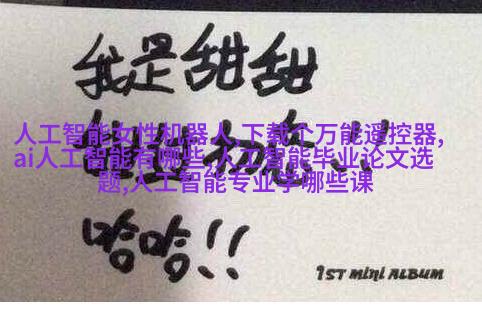 我是甜甜
人工智能女性机器人,下载个万能遥控器,
ai人工智能有哪些,人工智能毕业论文选
题,人工智能专业学哪些课
哈哈!!
1ST MINI ALBUM